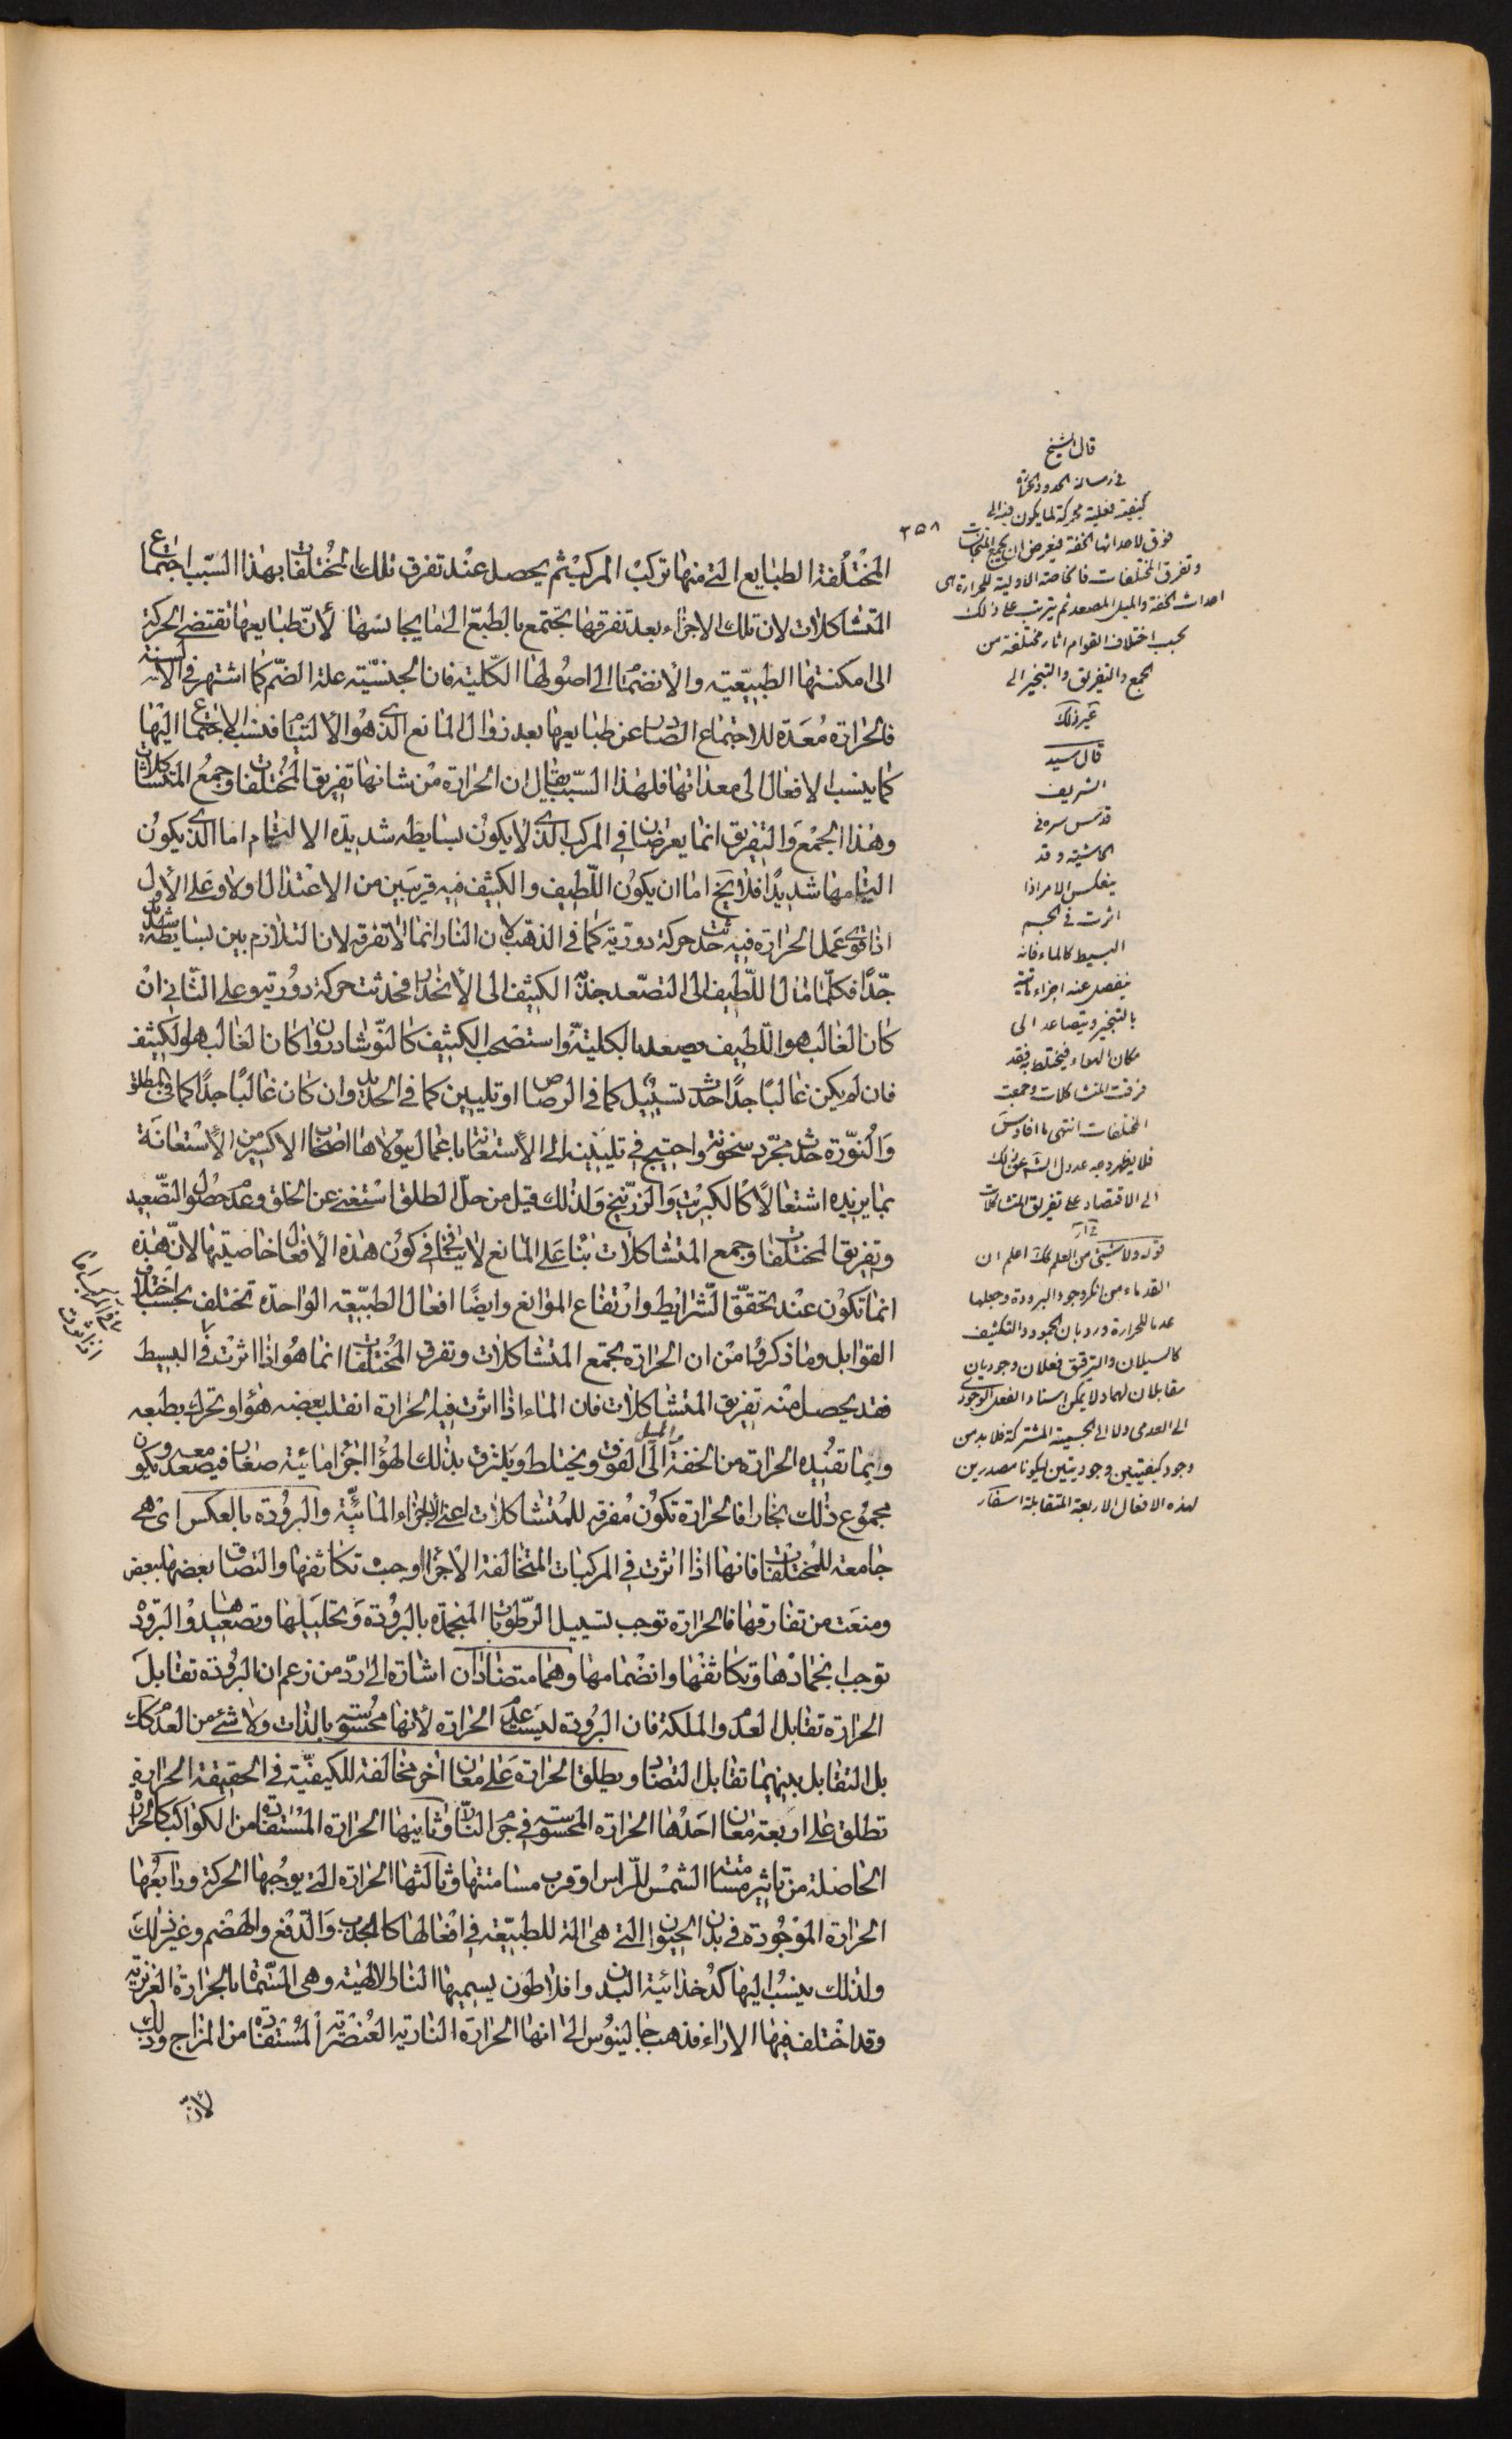 المختلفة الطبايع التى منها تركب المركب ثم يحصل عند تفرق تلك المختلفات بهذا السبب اجتماع
المتشاكلات لان تلك الاجزاء بعد تفرقها تجتمع بالطبع الى ما يجانسها لأنّ طبايعها تقتضى الحركة
الى امكنتها الطبيعية والانضمام الى اصولها الكلية فان الجنسية علة الضم كما اشتهر فى الالسنة
فالحرارة معدة للاجتماع الصادر عن طبايعها بعد زوال المانع الذى هو الالتيام فنسب الاجتماع اليها
كما ينسب الافعال الى معداتها فلهذا السبب يقال ان الحرارة من شانها تفريق المختلفات وجمع المتشاكلات
وهذا الجمع والتفريق انما يعرضان فى المركب الذى لا يكون بسايطه شديدة الالتيام اما الذى يكون
التيامها شديدًا فلا يخ اما ان يكون اللطيف والكثيف فيه قريبين من الاعتدال اولا وعلى الأول
اذا قوى عمل الحرارة فيه حدثت حركة دورية كما فى الذهب لان النار انما لا تفرقه لان التلازم بين بسايطه شديد
جدًا فكلما مال اللطيف الى التصعد جذبه الكثيف الى الأنحدار فحدثت حركة دورية وعلى الثانى ان
كان الغالب هو اللطيف يصعد بالكلية واستصحب الكثيف كالنوشادر وان كان الغالب هو الكثيف
فان لم يكن غالبًا جدًا حدث تسييل كما فى الرصاص او تليين كما فى الحديد وان كان غالبًا جدًا كما فى الطلق
والنورة حدث مجرد سخونة واحتيج فى تليينه الى الأستعانة باعمال يتولاها اصحاب الاكسير من الأستعانة
بما يزيده اشتعالًا كالكبريت والزرنيخ ولذلك قيل من حل الطلق استغنى عن الخلق وعدم حصول التصعيد
وتفريق المختلفات وجمع المتشاكلات بناء على المانع لا ينافى كون هذه الأفعال خاصيتها لانّ هذه
انما تكون عند تحقق الشرايط وارتفاع الموانع وايضًا افعال الطبيعة الواحدة تختلف بحسب اختلاف
القوابل وما ذكروا من ان الحرارة تجمع المتشاكلات وتفرق المختلفات انما هو اذا اثرت فى البسيط
فقد يحصل منه تفريق المتشاكلات فان الماء اذا اثرت فيه الحرارة انقلب بعضه هواء وتحرك بطبعه
وبما تفيده الحرارة من الخفة والميل الى الفوق ويختلط ويلتزق بذلك الهواء اجزاء مائية صغار فيصعد معه ويكون
مجموع ذلك بخارا فالحرارة تكون مفرقة للمتشاكلات اعنى الاجزاء المائية والبرودة بالعكس اى هى
جامعة للمختلفات فانها اذا اثرت فى المركبات المتخالفة الأجزاء اوجبت تكاثفها والتصاق بعضها ببعض
ومنعت من تفارقها فالحرارة توجب تسييل الرطوبات المنجمدة بالبرودة وتحليلها وتصعيدها والبرودة
توجب انجمادها وتكاثفها وانضمامها وهما متضادان اشارة الى رد من زعم ان البرودة تقابل
الحرارة تقابل العدم والملكة فان البرودة ليست عدم الحرارة لأنها محسوسة بالذات ولا شئ من العدم كك
بل التقابل بينهما تقابل التضاد ويطلق الحرارة على معان اخر مخالفة للكيفية فى الحقيقة الحرارة
تطلق على اربعة معان احدها الحرارة المحسوسة فى جرم النار وثانيها الحرارة المستفادة من الكواكب كالحرارة
الحاصلة من تاثير مسامتة الشمس للراس او قرب مسامتتها وثالثها الحرارة التى يوجبها الحركة ورابعها
الحرارة الموجودة فى بدن الحيوان التى هى الة للطبيعة فى افعالها كالجذب والدفع والهضم وغير ذلك
ولذلك ينسب اليها كدخدائية البدن وافلاطون يسميها النار الالهية وهى المسماة بالحرارة الغريزية
وقد اختلف فيها الاراء فذهب جالينوس الى انها الحرارة النارية العنصرية المستفادة من المزاج وذلك
لأن
٣٥٨
قال الشيخ
فى رسالة الحدود الحرارة
كيفية فعلية محركة لما يكون فيه الى
فوق لاحداثها الخفة فيعرض ان تجمع المتجانسات
وتفرق المختلفات فالخاصة الاولية للحرارة هى
احداث الخفة والميل المصعد ثم يترتب على ذلك
بحسب اختلاف القوام اثار مختلفة من
الجمع والتفريق والتبخير الى
غير ذلك
قال سيد
الشريف
قدس سره فى
الحاشية وقد
ينعكس الامر اذا
اثرت فى الجسم
البسيط كالماء فانه
ينفصل عنه اجزاء مائية
بالتبخير ويتصاعد الى
مكان الهواء فيختلط به فقد
فرقت المتشاكلات وجمعت
المختلفات انتهى ما افاد س
فلا يظهر وجه عدول الش عن ذلك
الى الاقتصار على تفريق المتشاكلات
قوله ولا شيئ من العدم كك اعلم ان
القدماء من انكر وجود البرودة وجعلها
عدما للحرارة ورد بان الجمود والتكثيف
كالسيلان والترقيق فعلان وجوديان
مقابلان لهما ولا يمكن اسناد الفعل الوجودى
الى العدمى ولا الى الجسمية المشتركة فلا بد من
وجود كيفيتين وجوديتين ليكونا مصدرين
لهذه الافعال الاربعة المتقابلة اسفار